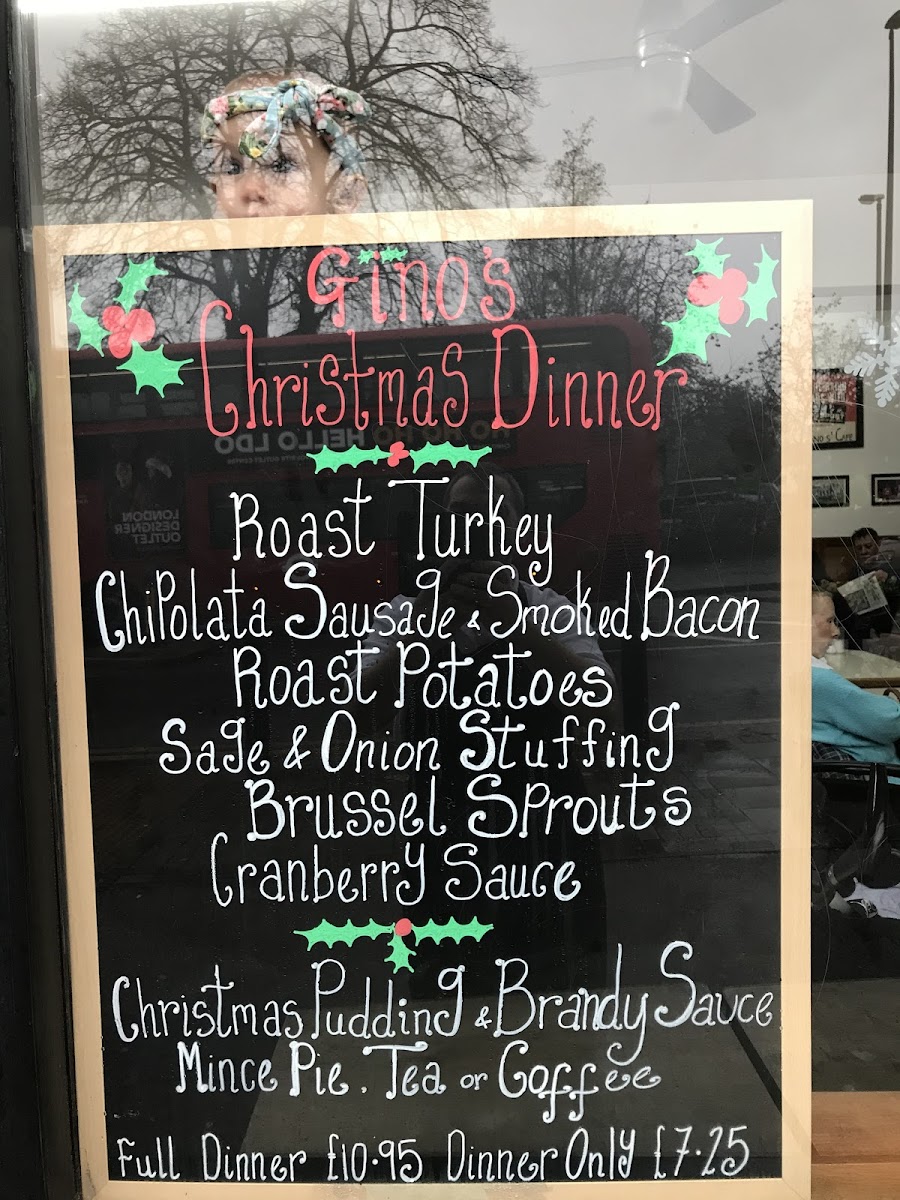 Gino's
Christmas Dinner
HO HO HO HELLO LDO
LONDON
DESIGNER
OUTLET
Roast Turkey
Chipolata Sausage & Smoked Bacon
Roast Potatoes
Sage & Onion Stuffing
Brussel Sprouts
Cranberry Sauce
Christmas Pudding & Brandy Sauce
Mince Pie. Tea or Coffee
Full Dinner £10.95 Dinner Only £7.25